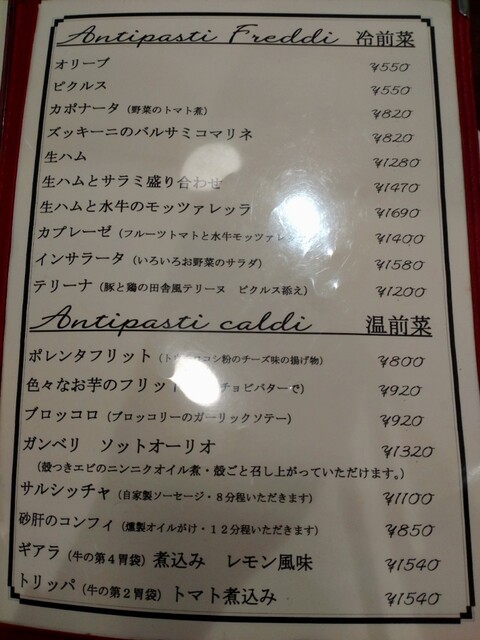 Antipasti Freddi 冷前菜
オリーブ ¥550
ピクルス ¥550
カポナータ（野菜のトマト煮） ¥820
ズッキーニのバルサミコマリネ ¥820
生ハム ¥1280
生ハムとサラミ盛り合わせ ¥1470
生ハムと水牛のモッツァレッラ ¥1690
カプレーゼ（フルーツトマトと水牛モッツァレ ¥1400
インサラータ（いろいろお野菜のサラダ） ¥1580
テリーナ（豚と鶏の田舎風テリーヌ ピクルス添え） ¥1200
Antipasti caldi 温前菜
ポレンタフリット（トウモロコシ粉のチーズ味の揚げ物） ¥800
色々なお芋のフリット チョビバターで） ¥920
ブロッコロ（ブロッコリーのガーリックソテー） ¥920
ガンベリ ソットオーリオ ¥1320
（殻つきエビのニンニクオイル煮・殻ごと召し上がっていただけます。）
サルシッチャ（自家製ソーセージ・８分程いただきます） ¥1100
砂肝のコンフィ（燻製オイルがけ・１２分程いただきます） ¥850
ギアラ（牛の第４胃袋）煮込み レモン風味 ¥1540
トリッパ（牛の第２胃袋）トマト煮込み ¥1540